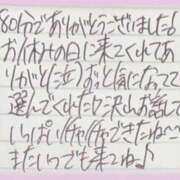 80分でありがとうございました!
お休みの日に来てくれてあ
りがと(泣)ずっと気になってて
選んでくれたし沢山お話して
いっぱいイチャイチャできたね〜
またいつでも来てね♪